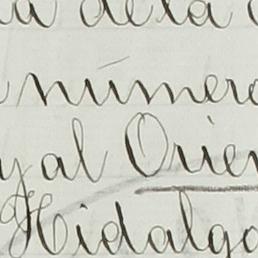 a de la
número
y al Orien
Hidalgo